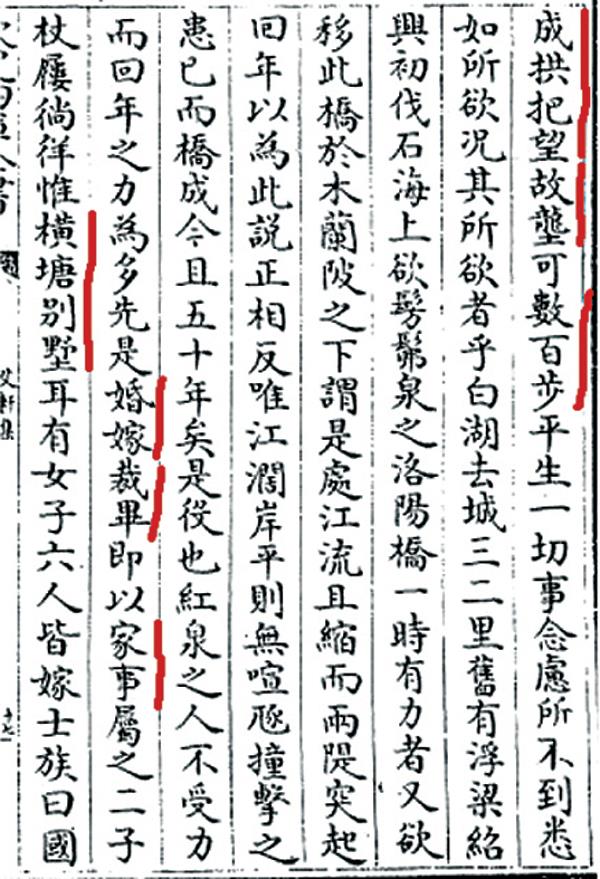 成拱把望故壟可數百步平生一切事念慮所不到悉
如所欲况其所欲者乎白湖去城三二里舊有浮梁紹
興初伐石海上欲髣髴泉之洛陽橋一時有力者又欲
移此橋於木蘭陂之下謂是處江流且縮而兩隄突起
回年以為此説正相反唯江濶岸平則無喧豗撞擊之
患已而橋成今且五十年矣是役也紅泉之人不受力
而回年之力為多先是婚嫁裁畢即以家事屬之二子
杖屨徜徉惟横塘別墅耳有女子六人皆嫁士族曰國